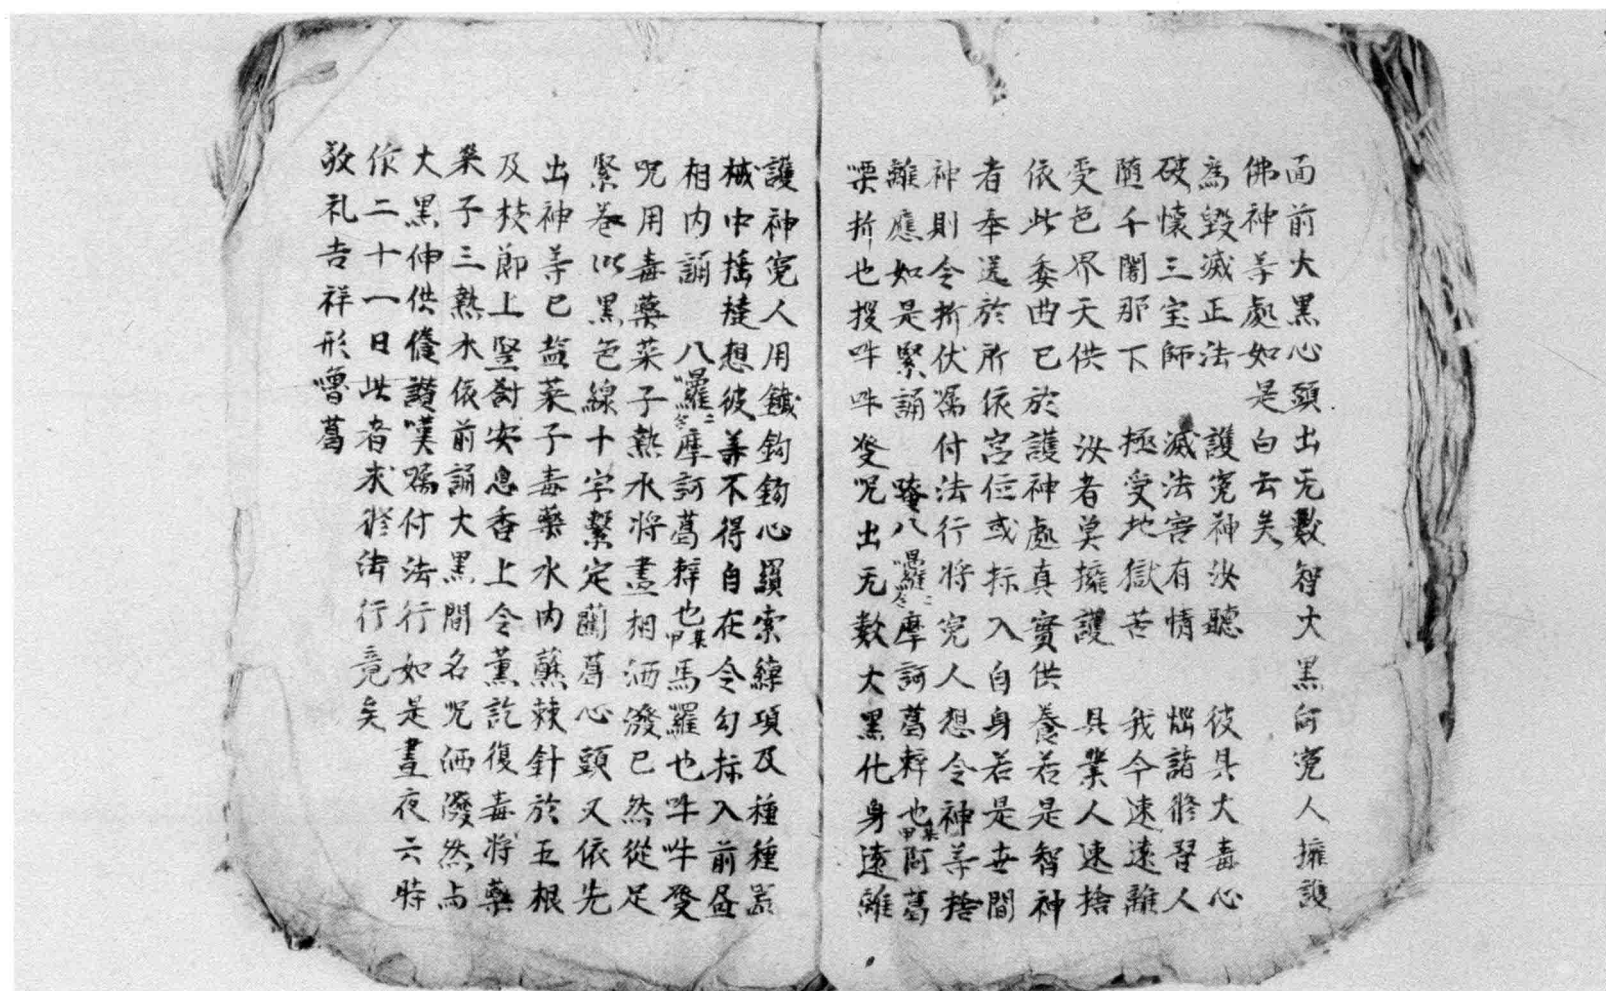 面前大黑心頭出无數智大黑向寃人擁護
佛神等處如是白云矣
為毀滅正法　護寃神汝聽　彼具大毒心
破懷三宝師　滅法害有情　𢙉諸修習人
隨千闇那下　極受地獄苦　我今速遠離
受色界天供　汝者莫擁護　具業人速捨
依此委曲已於護神處真實供養若是智神
者奉送於所依宮位或捺入自身若是世間
神則令折伏囑付法行將寃人想令神等捨
離應如是緊誦　唵八㘕二合摩訶葛辢也某甲阿葛
㗚折也授吽吽發呪出无數大黑化身遠離
護神寃人用鐵鈎鈎心羂索繂項及種種器
械中搖撻想彼等不得自在令勾捺入前晝
相內誦　八㘕二合摩訶葛辢也某甲馬羅也吽吽發
呪用毒藥菜子熱水將畫相洒潑已然從足
緊卷以黑色線十字繫定蘭葛心頭又依先
出神等已盐菜子毒藥水內蘸棘針於五根
及枝節上竪釘安息香上令薰訖復毒將藥
菜子三熱水依前誦大黑間名呪洒潑然与
大黑伸供儅讃嘆囑付法行如是晝夜六時
依二十一日此者求修法行竟矣
敬礼吉祥形嚕葛